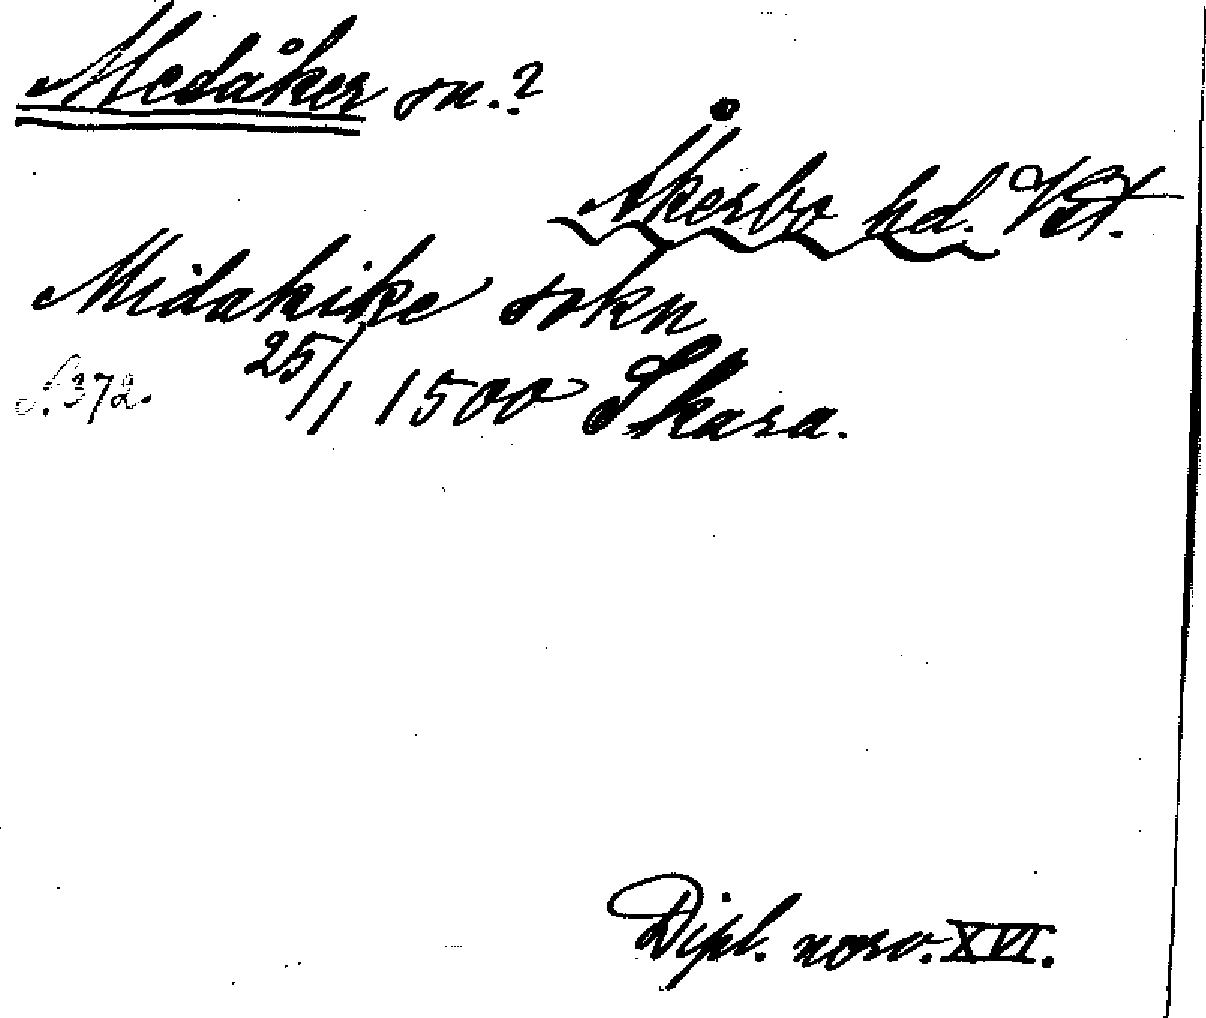 Medåker sn.?
Åkerbo hd. Vstm.
Midakike sokn
N. 372. 25/1 1500 Skara.
Dipl. norv. XVI.